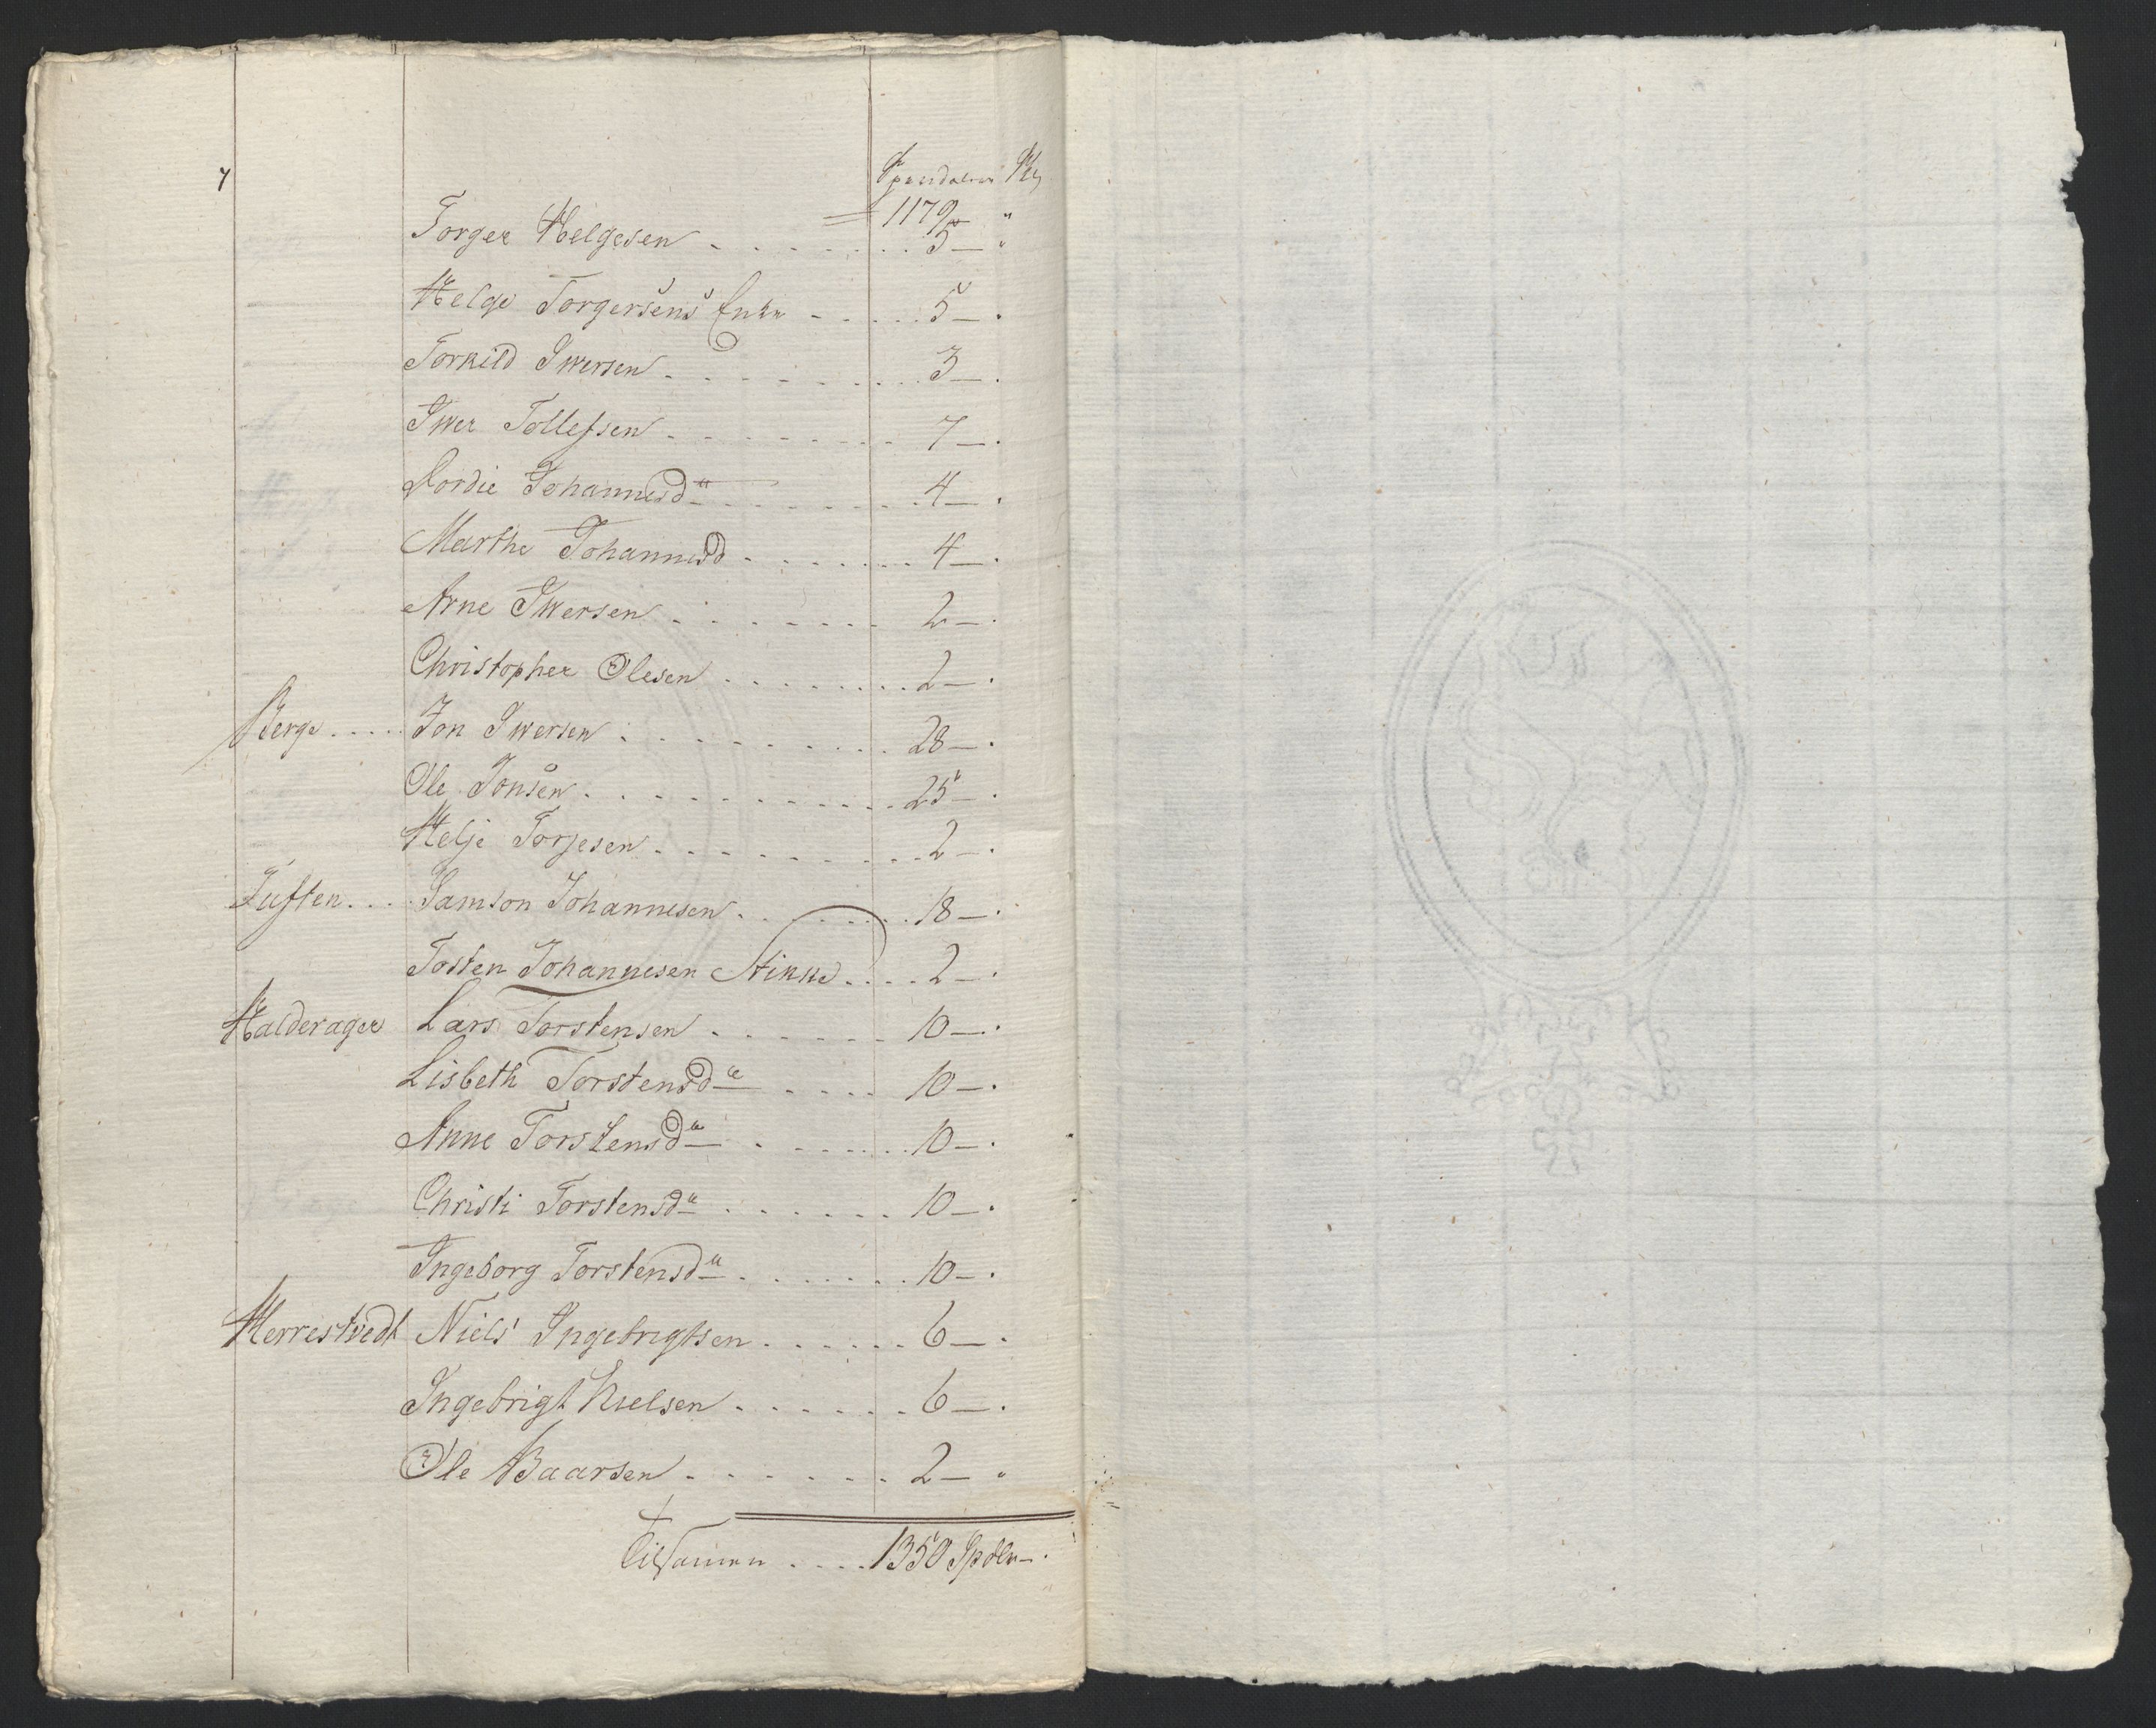 7
Speciedaler Sk
1179 "
Torger Helgesen . . . . . . . 5 — "
Helge Torgersens Enke - . . . . 5 — .
Torkild Iwersen . . . . . . . . 3 — .
Iwer Tollefsen . . . . . . . 7 — .
Dordie Johannesd . . . . . . . 4 — .
Marthe Johannesd . . . . . . . 4 — .
Arne Iwersen . . . . . . . 2 — .
Christopher Olesen . . . . . . . . 2 — .
Berge . . . . . Jon Iwersen . . . . . . . . . 28 — .
Ole Jonsen . . . . . . . . . . 25 — .
Helje Torjesen . . . . . . . . . 2 — .
Tuften . . . . Samson Johannesen . . . . . . . 18 — .
Tosten Johannesen Stikke . . . . 2 — .
Halderager Lars Torstensen . . . . . . 10 — .
Lisbeth Torstensd . . . . 10 — .
Anne Torstensd . . . . . . . 10 — .
Christi Torstensd . . . . . . . 10 — .
Ingeborg Torstensd . . . . . . . 10 — .
Herrestvedt Niels Ingebrigtsen . . . . . . 6 — .
Ingebrigt Nielsen . . . . . . 6 — .
Ole Baarsen . . . . . . 2 — "
Tilsamen . . . . 1350 Spdlr — .